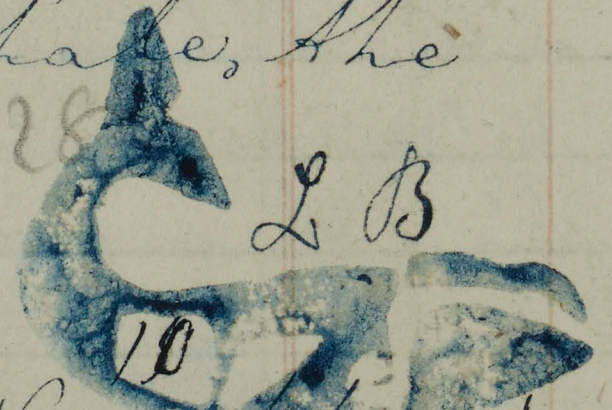 hale, the
28
L B
10